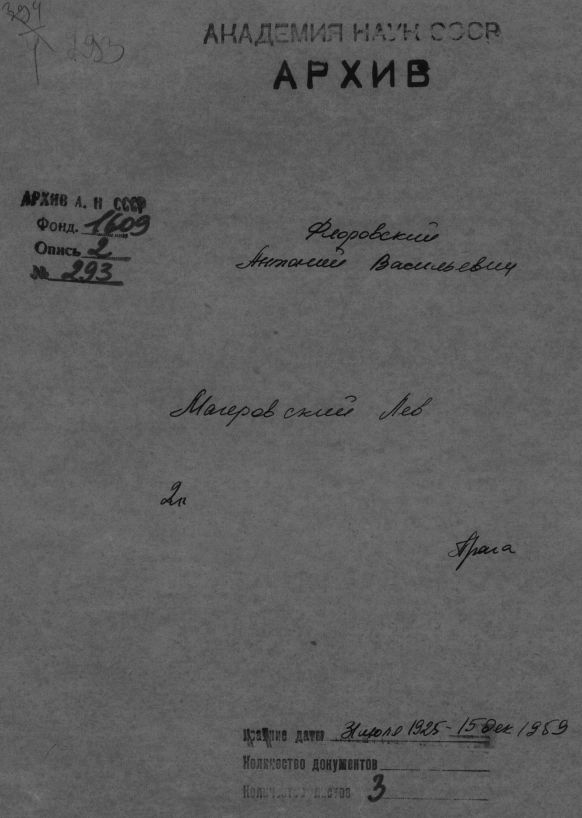 394
293
АКАДЕМИЯ НАУК СССР
АРХИВ
АРХИВ А. Н СССР
Фонд. 1609
Опись 2
№ 293
Флоровский
Антоний Васильевич
Магеровский Лев
2п
Прага
Крайние даты 31 июля 1925 - 15 дек 1959
Количество документов
Количество листов 3